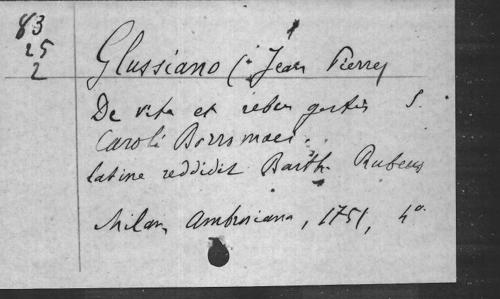 83
25
2
Glussiano (Jean Pierre)
De vita et rebus gestis S.
Caroli Borromaei.
latine reddidit Barth. Rubeus
Milan, Ambrosiana, 1751, 4o.